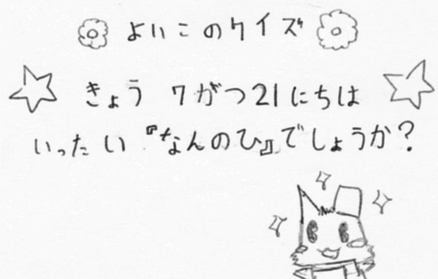 よいこのクイズ
きょう 7がつ21にちは
いったい『なんのひ』でしょうか?